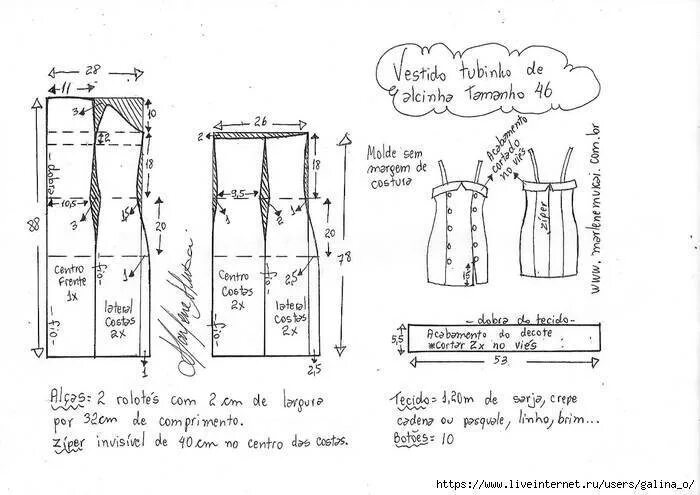 28
11
3
10
2
18
- dobra -
10,5
3
1,5
20
88
1
Centro
Frente
1x
- fio -
- fio -
lateral
Costas
2x
1
Marlene Mukai
26
2
18
9,5
1
2
1
20
78
2,5
Centro
Costas
2x
- fio -
- fio -
lateral
Costas
2x
2,5
Vestido tubinho de
alcinha Tamanho 46
Molde sem
margem de
costura
Acabamento
cortado
no viés
zíper
15
www.marlenemukai.com.br
- dobra do tecido -
5,5
Acabamento do decote
*Cortar 2x no viés
53
Alças= 2 rolotês com 2 cm de largura
por 32cm de comprimento.
zíper invisível de 40 cm no centro das costas.
Tecido= 1,20m de sarja, crepe
cadena ou pasquale, linho, brim...
Botões= 10
https://www.liveinternet.ru/users/galina_o/